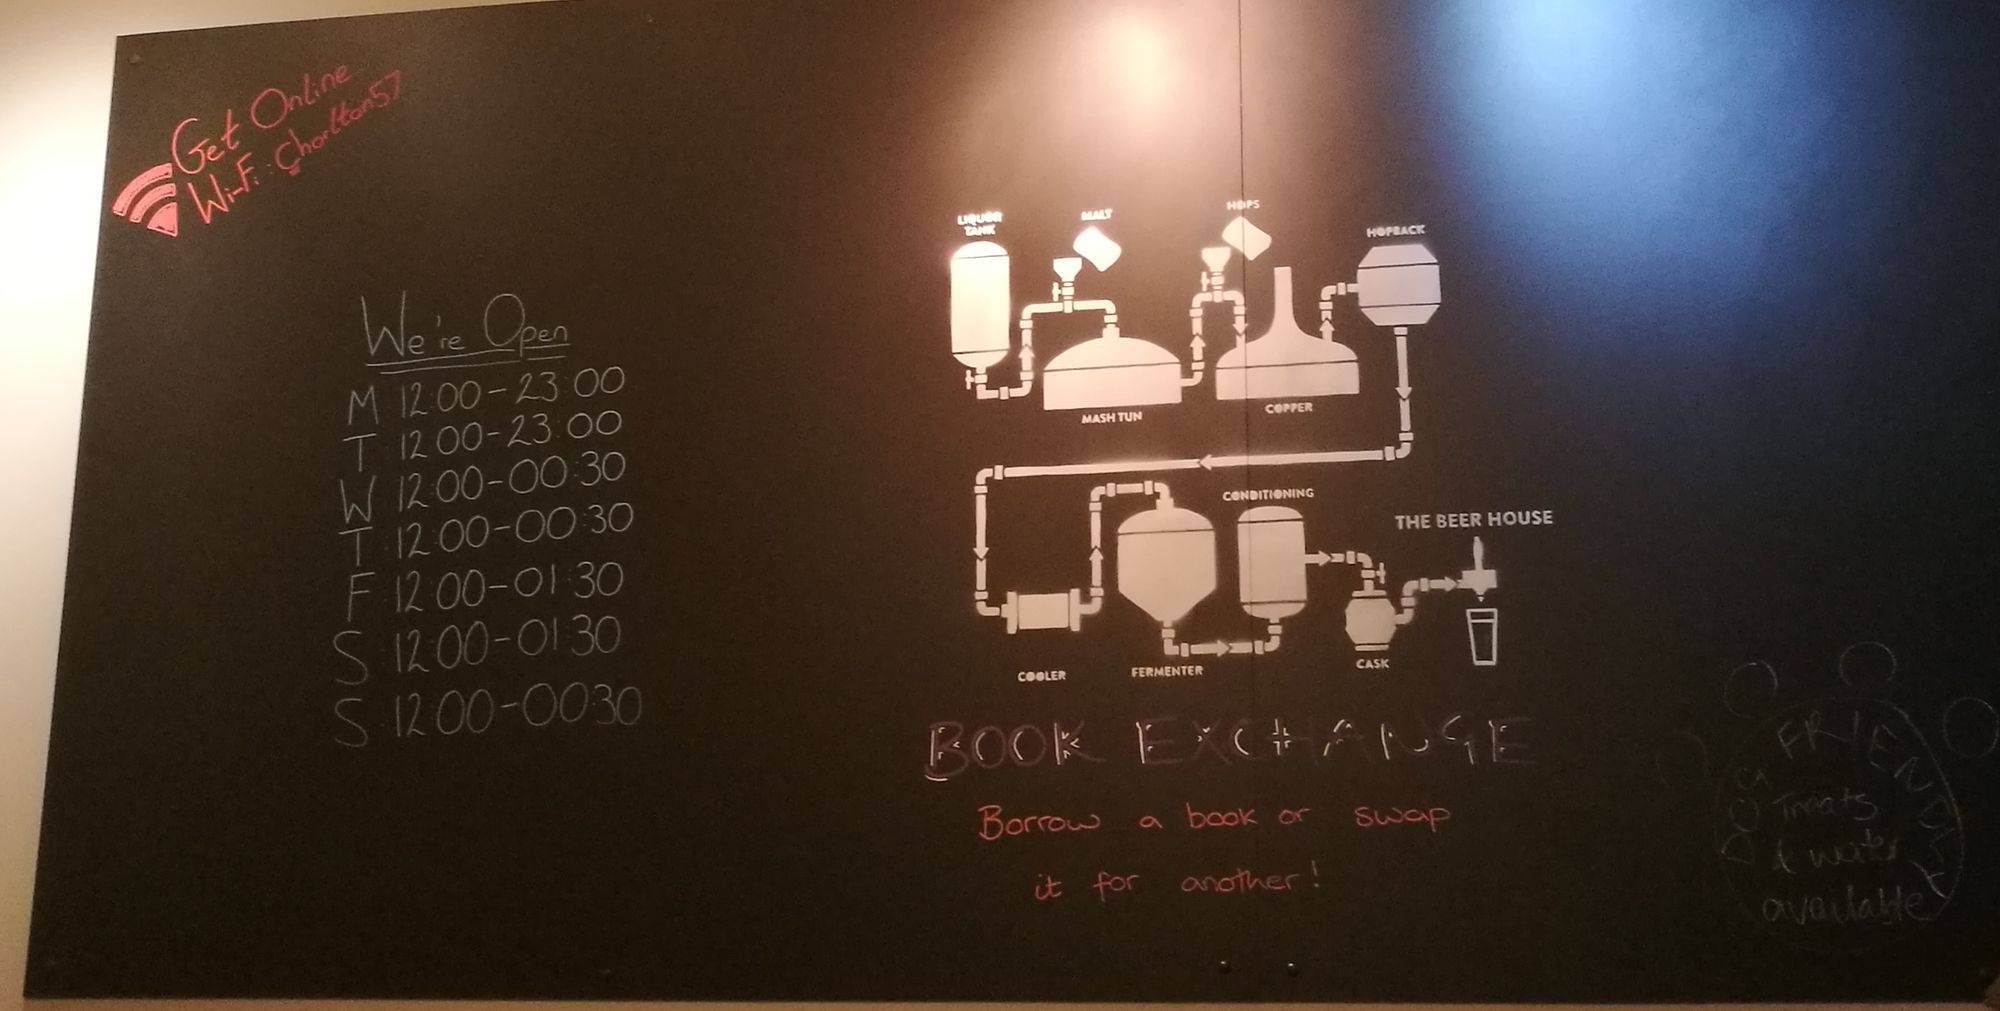 Get Online
Wi-Fi: Chorlton57
We're Open
M 12:00-23:00
T 12:00-23:00
W 12:00-00:30
T 12:00-00:30
F 12:00-01:30
S 12:00-01:30
S 12:00-00:30
LIQUOR
TANK
MALT
HOPS
HOPBACK
MASH TUN
COPPER
CONDITIONING
THE BEER HOUSE
COOLER
FERMENTER
CASK
BOOK EXCHANGE
Borrow a book or swap
it for another!
DOG FRIENDLY
Treats
& water
available